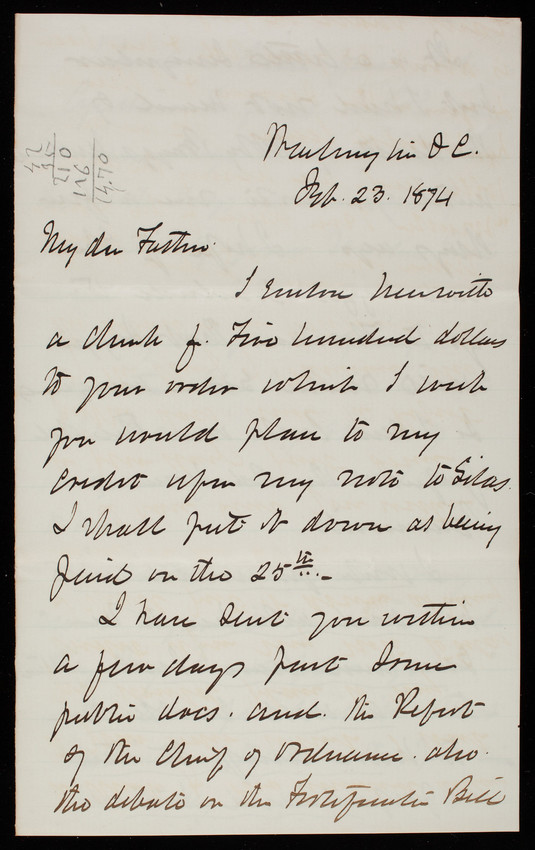 Washington D C.
Feb. 23. 1874
42
35
210
126
14.70
My dear Father.
I enclose herewith
a check for Five hundred dollars
to your order which I wish
you would place to my
credit upon my note to Silas.
I shall put it down as being
paid on the 25th.-
I have sent you within
a few days past some
public docs. and. the Report
of the Chief of Ordnance. also.
the debate on the Fortification Bill